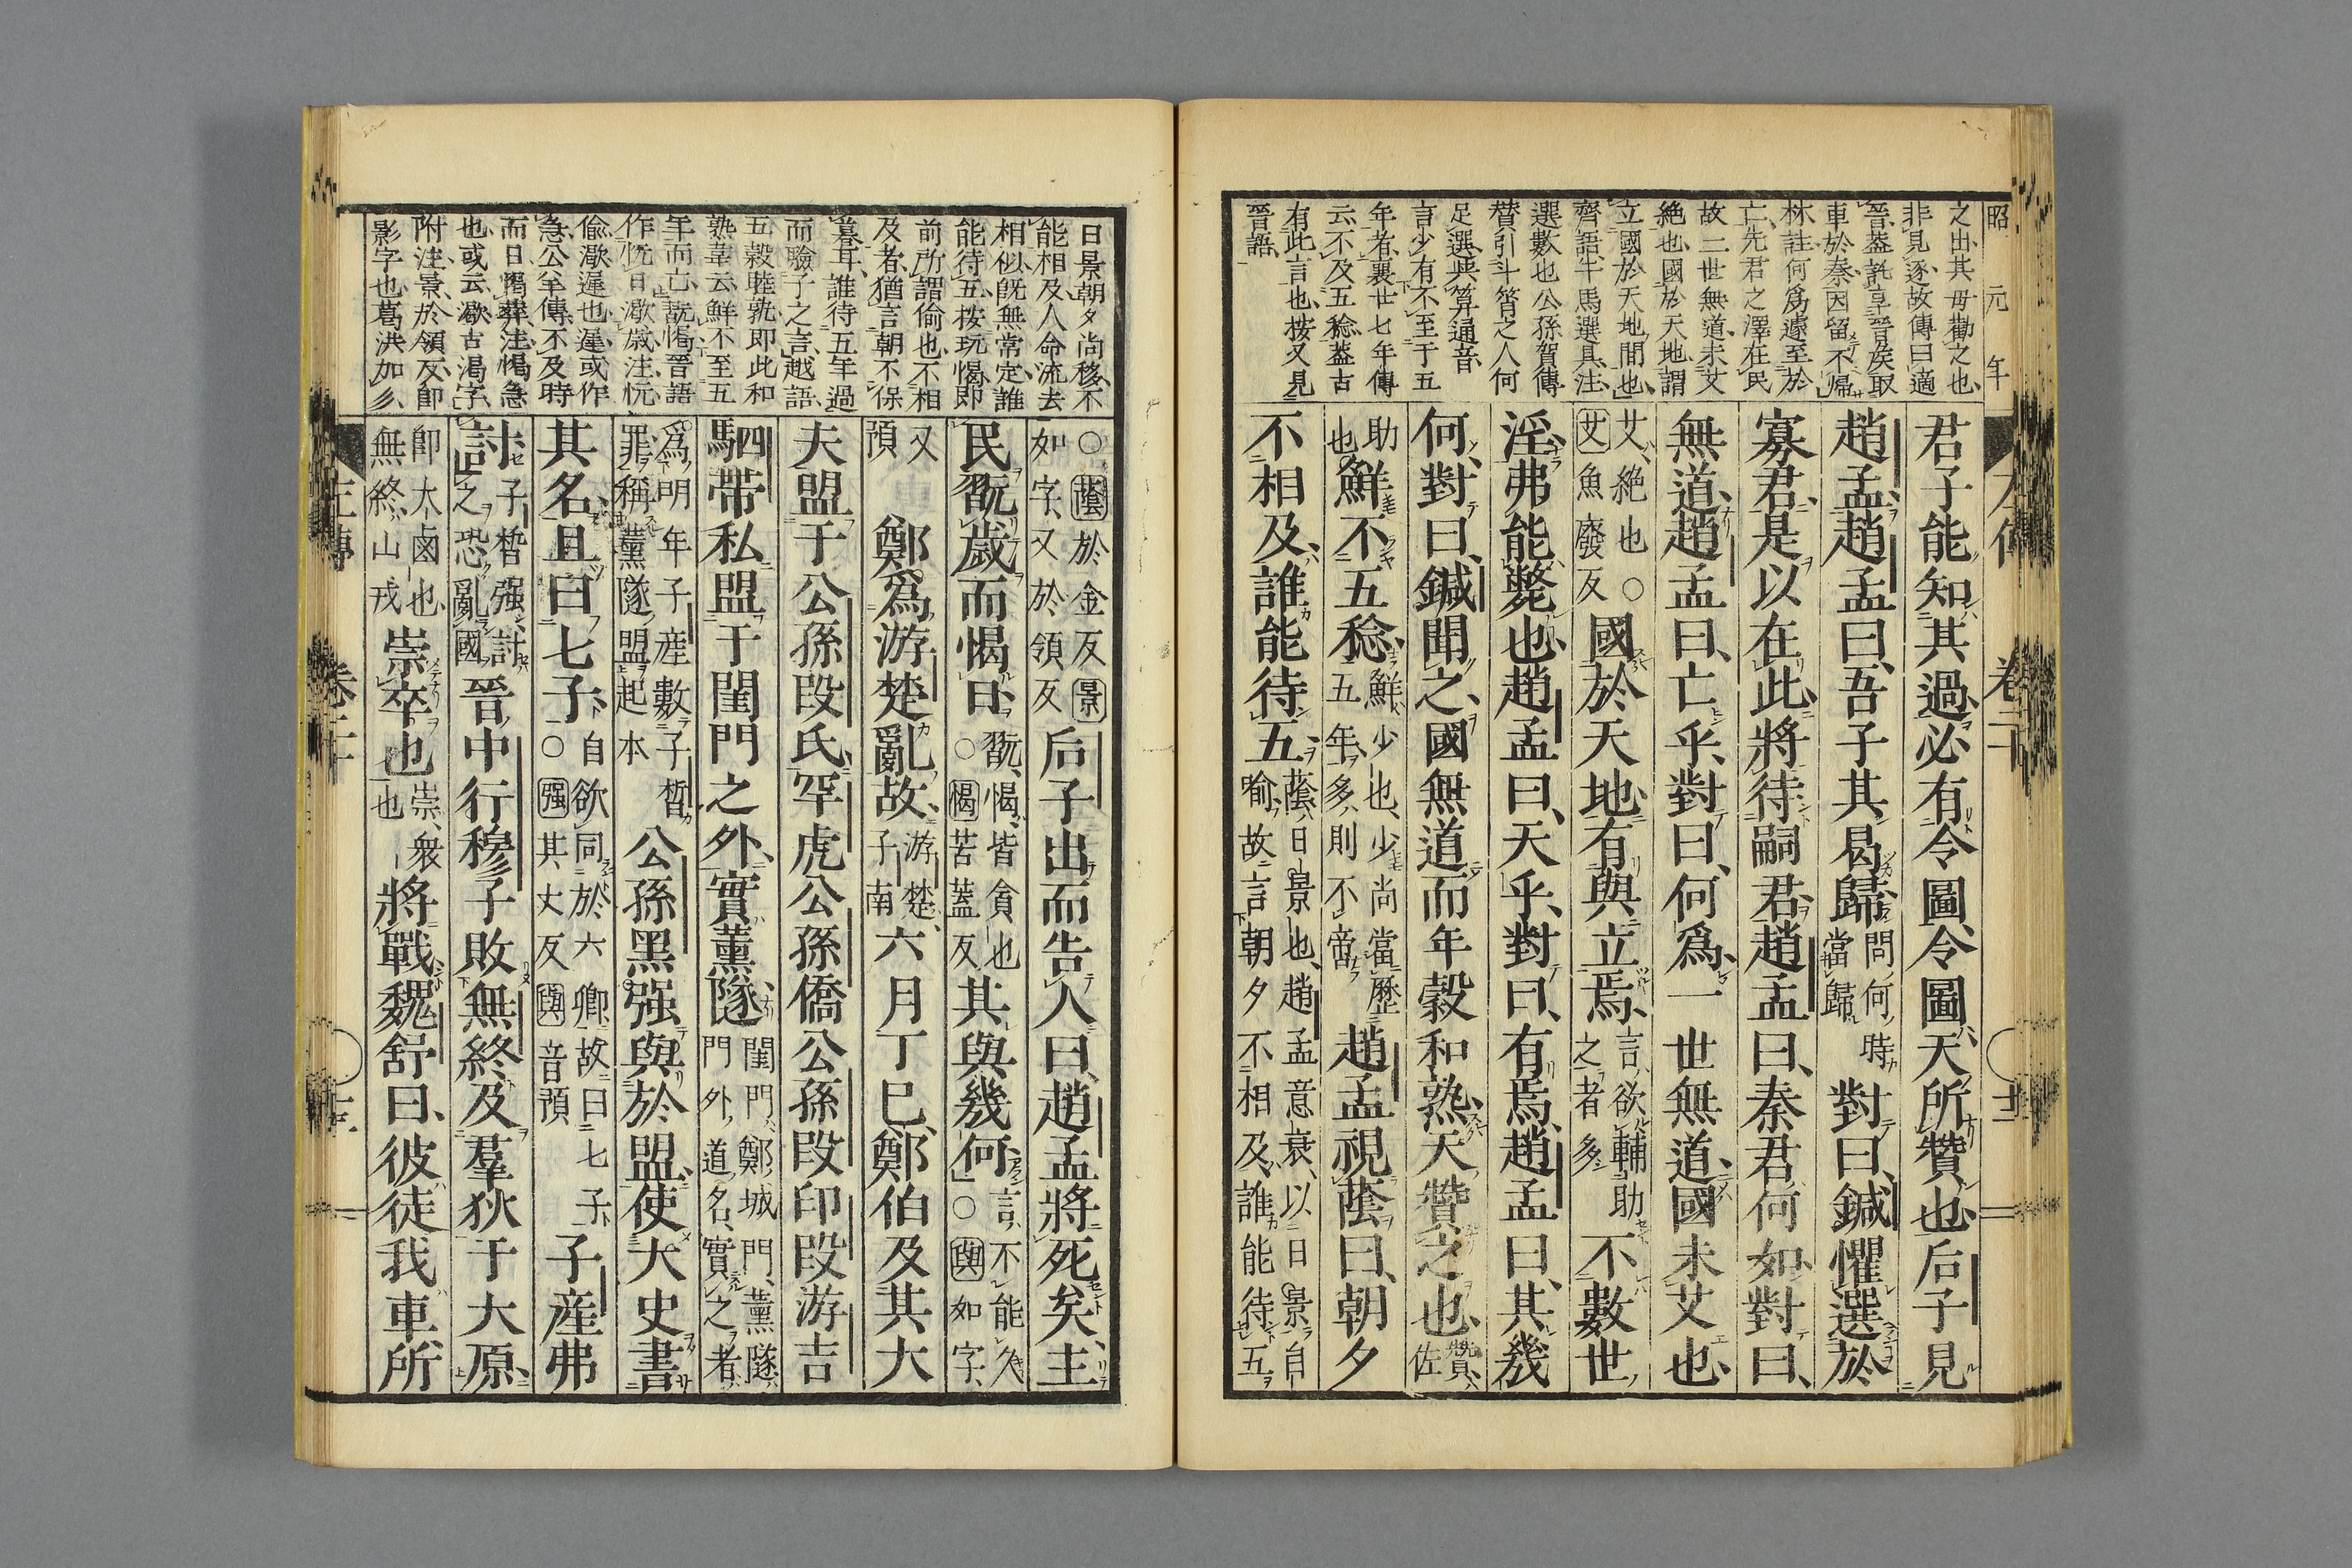 昭元年
之出其毋勸之也
非見逐故傳曰適
晉葢託享晉矦取
車於秦因留不帰
林註何爲遽至於
亡先君之澤在民
故二世無道未艾
絶也國於天地謂
立國於天地間也
齊語牛馬選具注
選數也公孫賀傳
賛引斗筲之人何
足選與算通音
言少有不至于五
年者襄廿七年傳
云不及五稔葢古
有此言也桉又見
晉語
君子能知其過必有令圖令圖天所贊也后子見
趙孟趙孟曰吾子其曷歸問何時當歸對曰鍼懼選於
寡君是以在此將待嗣君趙孟曰秦君何如對曰
無道趙孟曰亡乎對曰何爲一世無道國未艾也
艾絶也○艾魚廢反國於天地有與立焉言欲輔助之者多不數世
淫弗能斃也趙孟曰天乎對曰有焉趙孟曰其幾
何對曰鍼聞之國無道而年穀和熟天贊之也贊佐
助也鮮不五稔鮮少也少尚當歷五年多則不啻趙孟視蔭曰朝夕
不相及誰能待五蔭日景也趙孟意衰以日景自喻故言朝夕不相及誰能待五
日景朝夕尚移不
能相及人命流去
相似旣無常定誰
能待五桉玩愒即
前所謂偷也不相
及者猶言朝不保
暮耳誰待五年過
而驗子之言越語
五穀睦孰即此和
熟韋云鮮不至五
年而亡翫愒晉語
作忨日㵣歳注忨
偷㵣遲也遲或作
急公羊傳不及時
而日愒葬注愒急
也或云㵣古渴字
附注景於領反即
影字也葛洪加彡
○蔭於金反景如字又於領反后子出而告人曰趙孟將死矣主
民翫歲而愒日翫愒皆貪也○愒苦蓋反其與幾何言不能久○與如字
又預鄭爲游楚亂故游楚子南六月丁巳鄭伯及其大
夫盟于公孫段氏罕虎公孫僑公孫段印段游吉
駟帶私盟于閨門之外實薰隧閨門鄭城門薰隧門外道名實之者
爲明年子產數子晳罪稱薰隧盟起本公孫黑强與於盟使大史書
其名且曰七子自欲同於六卿故曰七子○强其丈反與音預子產弗
討子晳强討之恐亂國晉中行穆子敗無終及羣狄于大原
卽大鹵也無終山戎崇卒也崇衆也將戰魏舒曰彼徒我車所